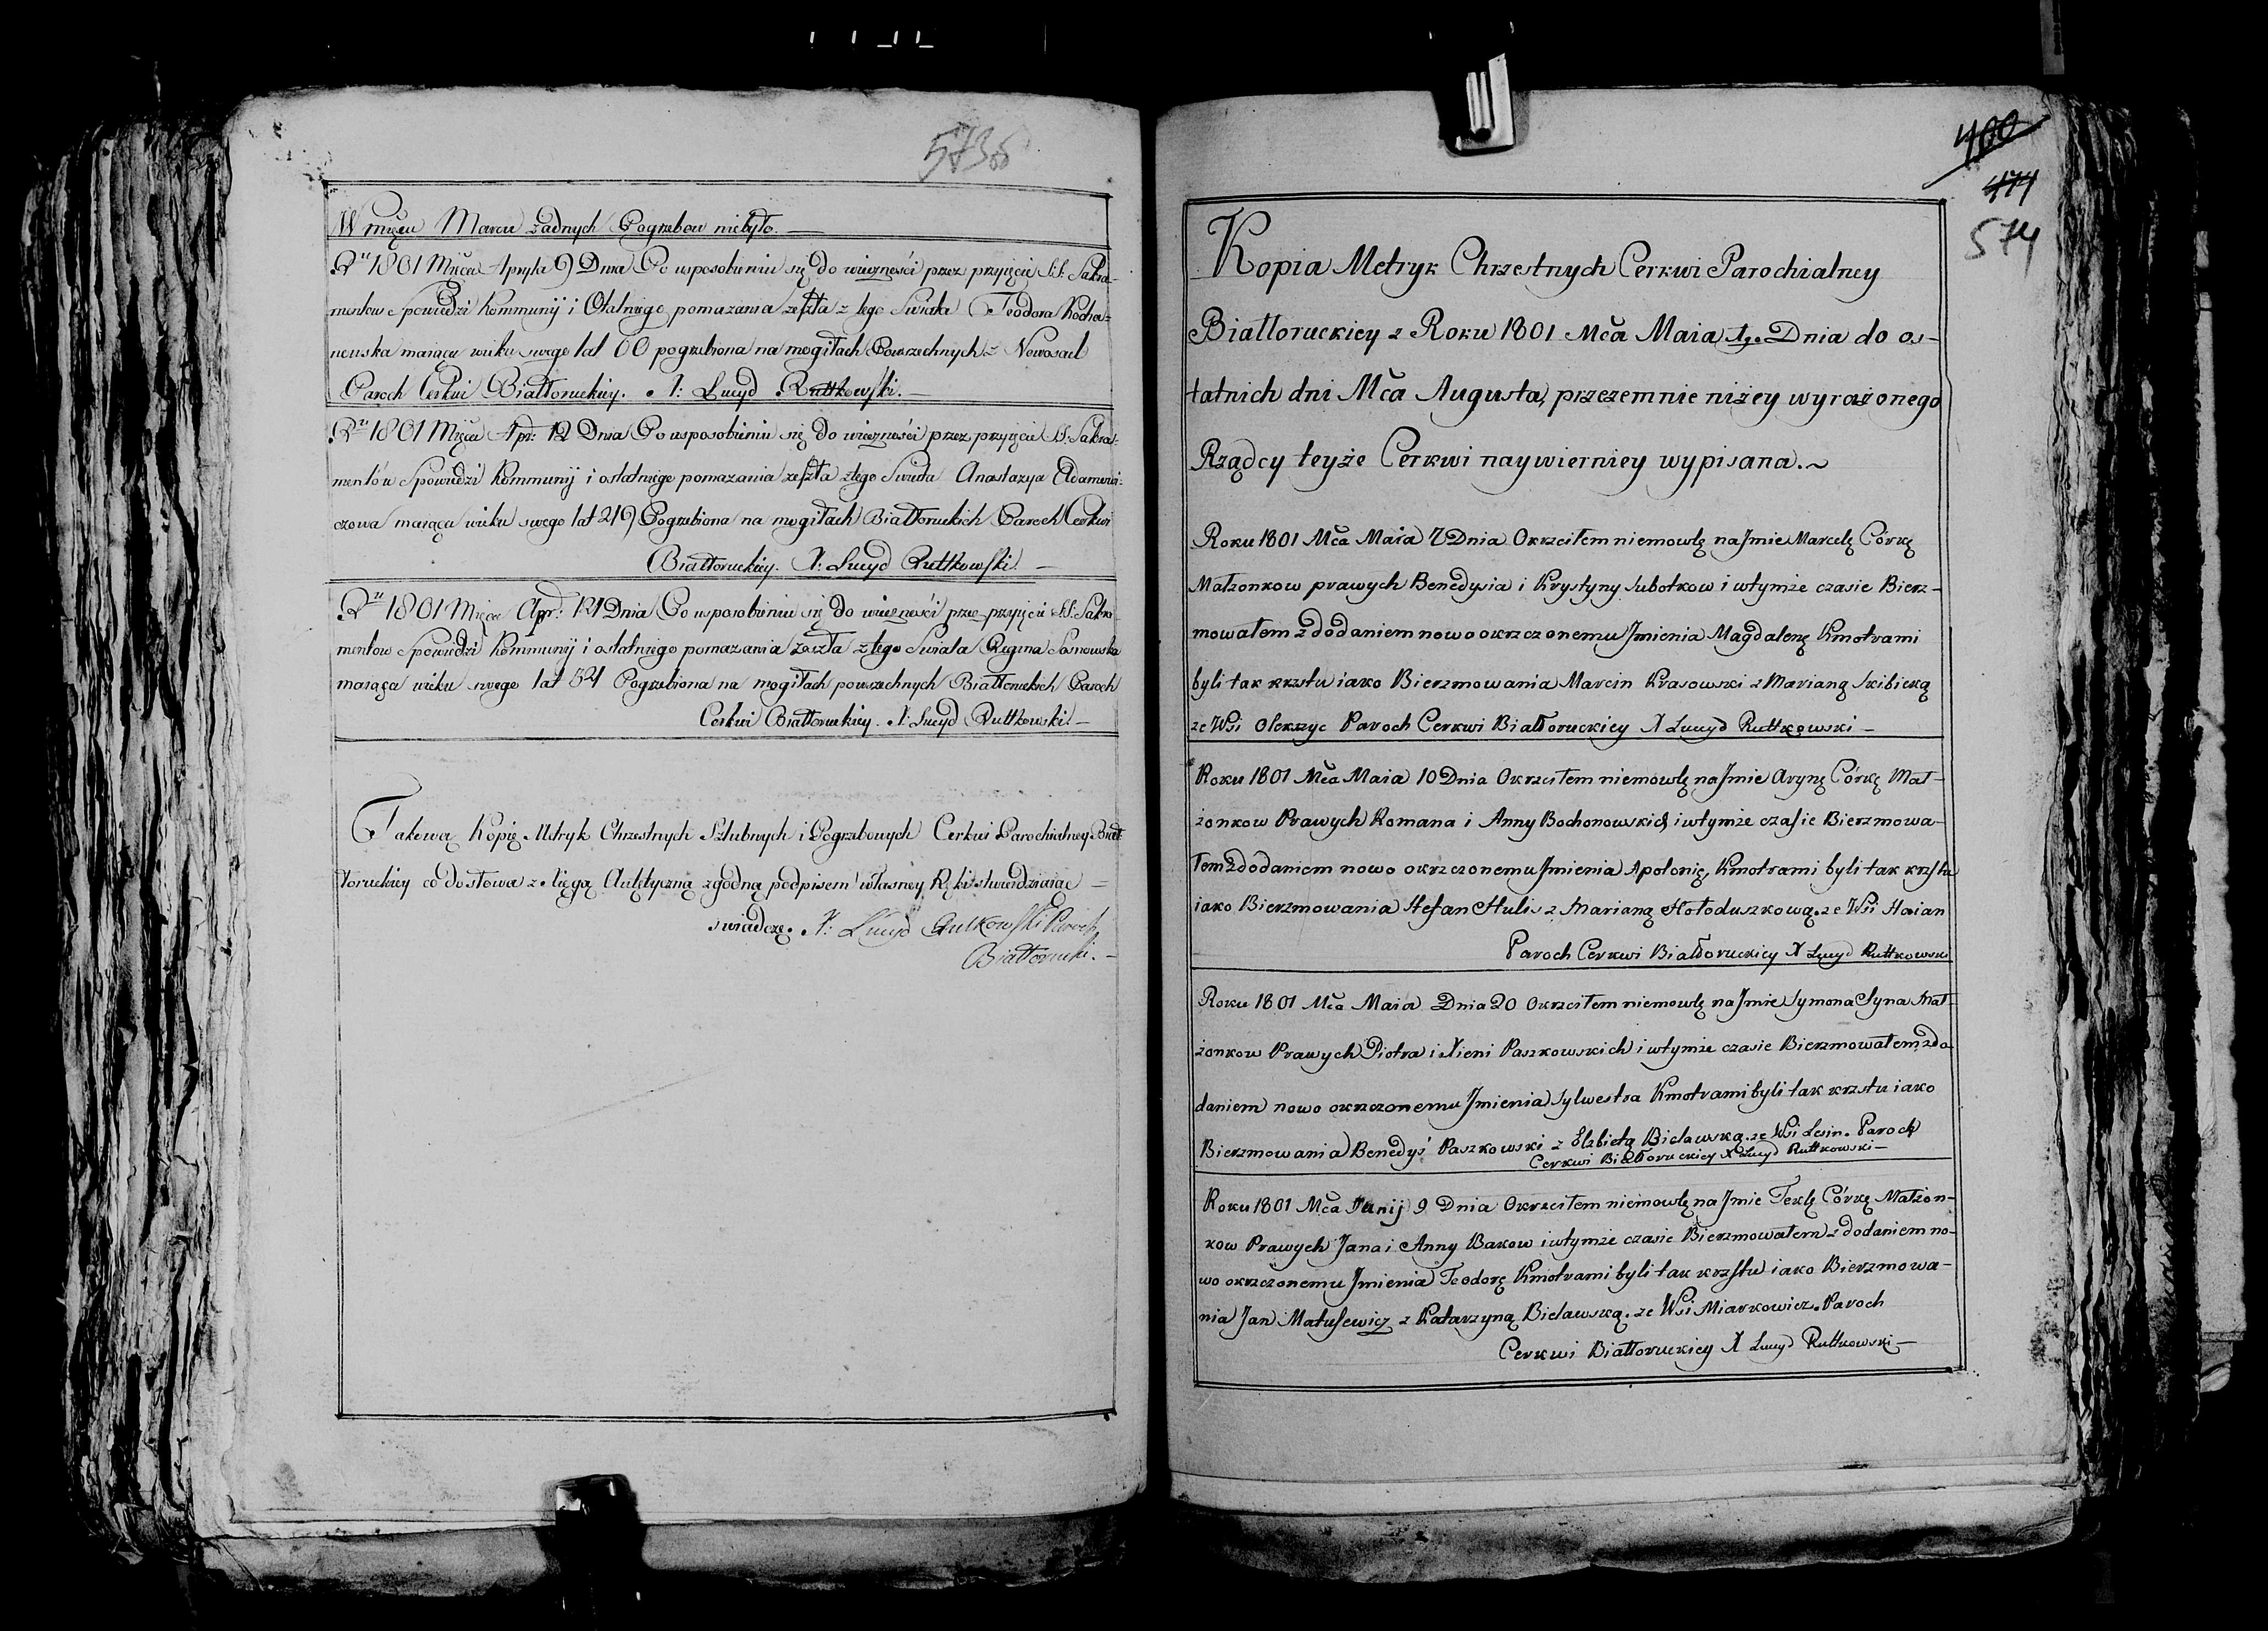 573об
W mięcu Marcu żadnych Pogrzebow niebyło. —
Rᵘ 1801 Mięca Apryla 9 Dnia Po usposobieniu się do wieczności przez przyięcie S.S. Sakra-
mentow Spowiedzi Kommunij i Ostatniego pomazania zeszła z tego Swiata Teodora Kocha-
newska maiąca wieku swego lat 60 pogrzebiona na mogiłach Powszechnych z Nowosad
Paroch Cerkwi Białłoruckiey. X: Lucyd Ruttkowski. —
Rᵘ 1801 Mięca Apr: 12 Dnia Po usposobieniu się do wieczności przez przyięcie S.S. Sakra-
mentów Spowiedzi Kommunij i ostatniego pomazania zeszła z tego Swiata Anastazya Adamowi-
czowa maiąca wieku swego lat Pogrzebiona na mogiłach Białłoruckich Paroch Cerkwi
Białłoruckiey. X: Lucyd Ruttkowski. —
Rᵘ 1801 Mięca Apr: Dnia Po usposobieniu się do wieczności przez przyięcie S.S. Sakra-
mentow Spowiedzi Kommunij i ostatniego pomazania zeszła z tego Swiata Regina Sosnowska
maiąca wieku swego lat Pogrzebiona na mogiłach powszechnych Białłoruckich Paroch
Cerkwi Białłoruckiey. X: Lucyd Ruttkowski. —
Takową Kopię Metryk Chrzestnych Szlubnych i Pogrzebowych Cerkwi Parochialney Biał-
łoruckiey co do słowa z Xięgą Autętyczną zgodną podpisem własney Ręki stwierdzaiąc —
swiadczę. X: Lucyd Rutkowski Paroch
Białłorucki. —
400
474
574
Kopia Metryk Chrzestnych Cerkwi Parochialney
Białłoruckiey z Roku 1801 Mca Maia 1go Dnia do os-
tatnich dni Mca Augusta, przezemnie niżey wyrażonego
Rządcy teyże Cerkwi naywierniey wypisana. ~
Roku 1801 Mca Maia 7 Dnia Okrzciłem niemowlę na Jmie Marcelę Córkę
Małżonkow prawych Benedysia i Krystyny Subotkow i wtymże czasie Bierz-
mowałem z dodaniem nowo okrzczonemu Jmienia Magdalenę Kmotrami
byli tak krzstu iako Bierzmowania Marcin Krasowski z Marianą Skibicką
ze Wsi Olekszyc Paroch Cerkwi Białłoruckiey X Lucyd Ruttkowski —
Roku 1801 Mca Maia 10 Dnia Okrzciłem niemowlę na Jmie Arynę Córkę Mał-
żonkow Prawych Romana i Anny Bochonowskich i wtymże czasie Bierzmowa-
łem z dodaniem nowo okrzczonemu Jmienia Apolonię, Kmotrami byli tak krzstu
iako Bierzmowania Stefan Hulis z Marianą Hołoduszkową. ze Wsi Haian
Paroch Cerkwi Białłoruckiey X Lucyd Ruttkowski
Roku 1801 Mca Maia Dnia 20 Okrzciłem niemowlę na Jmie Symona Syna Mał-
żonkow Prawych Piotra i Xieni Paszkowskich i wtymże czasie Bierzmowałem z do-
daniem nowo okrzczonemu Jmienia Sylwestra Kmotrami byli tak krzstu iako
Bierzmowania Benedyś Paszkowski z Elzbietą Bielawską. ze Wsi Lesin. Paroch
Cerkwi Białłoruckiey X Lucyd Ruttkowski —
Roku 1801 Mca Junij 9 Dnia Okrzciłem niemowlę na Jmie Teklę Córkę Małżon-
kow Prawych Jana i Anny Bakow i wtymże czasie Bierzmowałem z dodaniem no-
wo okrzczonemu Jmienia Teodorę Kmotrami byli tak krzstu iako Bierzmowa-
nia Jan Matusewicz z Katarzyną Bielawską. ze Wsi Miarkowicz. Paroch
Cerkwi Białłoruckiey X Lucyd Ruttkowski —